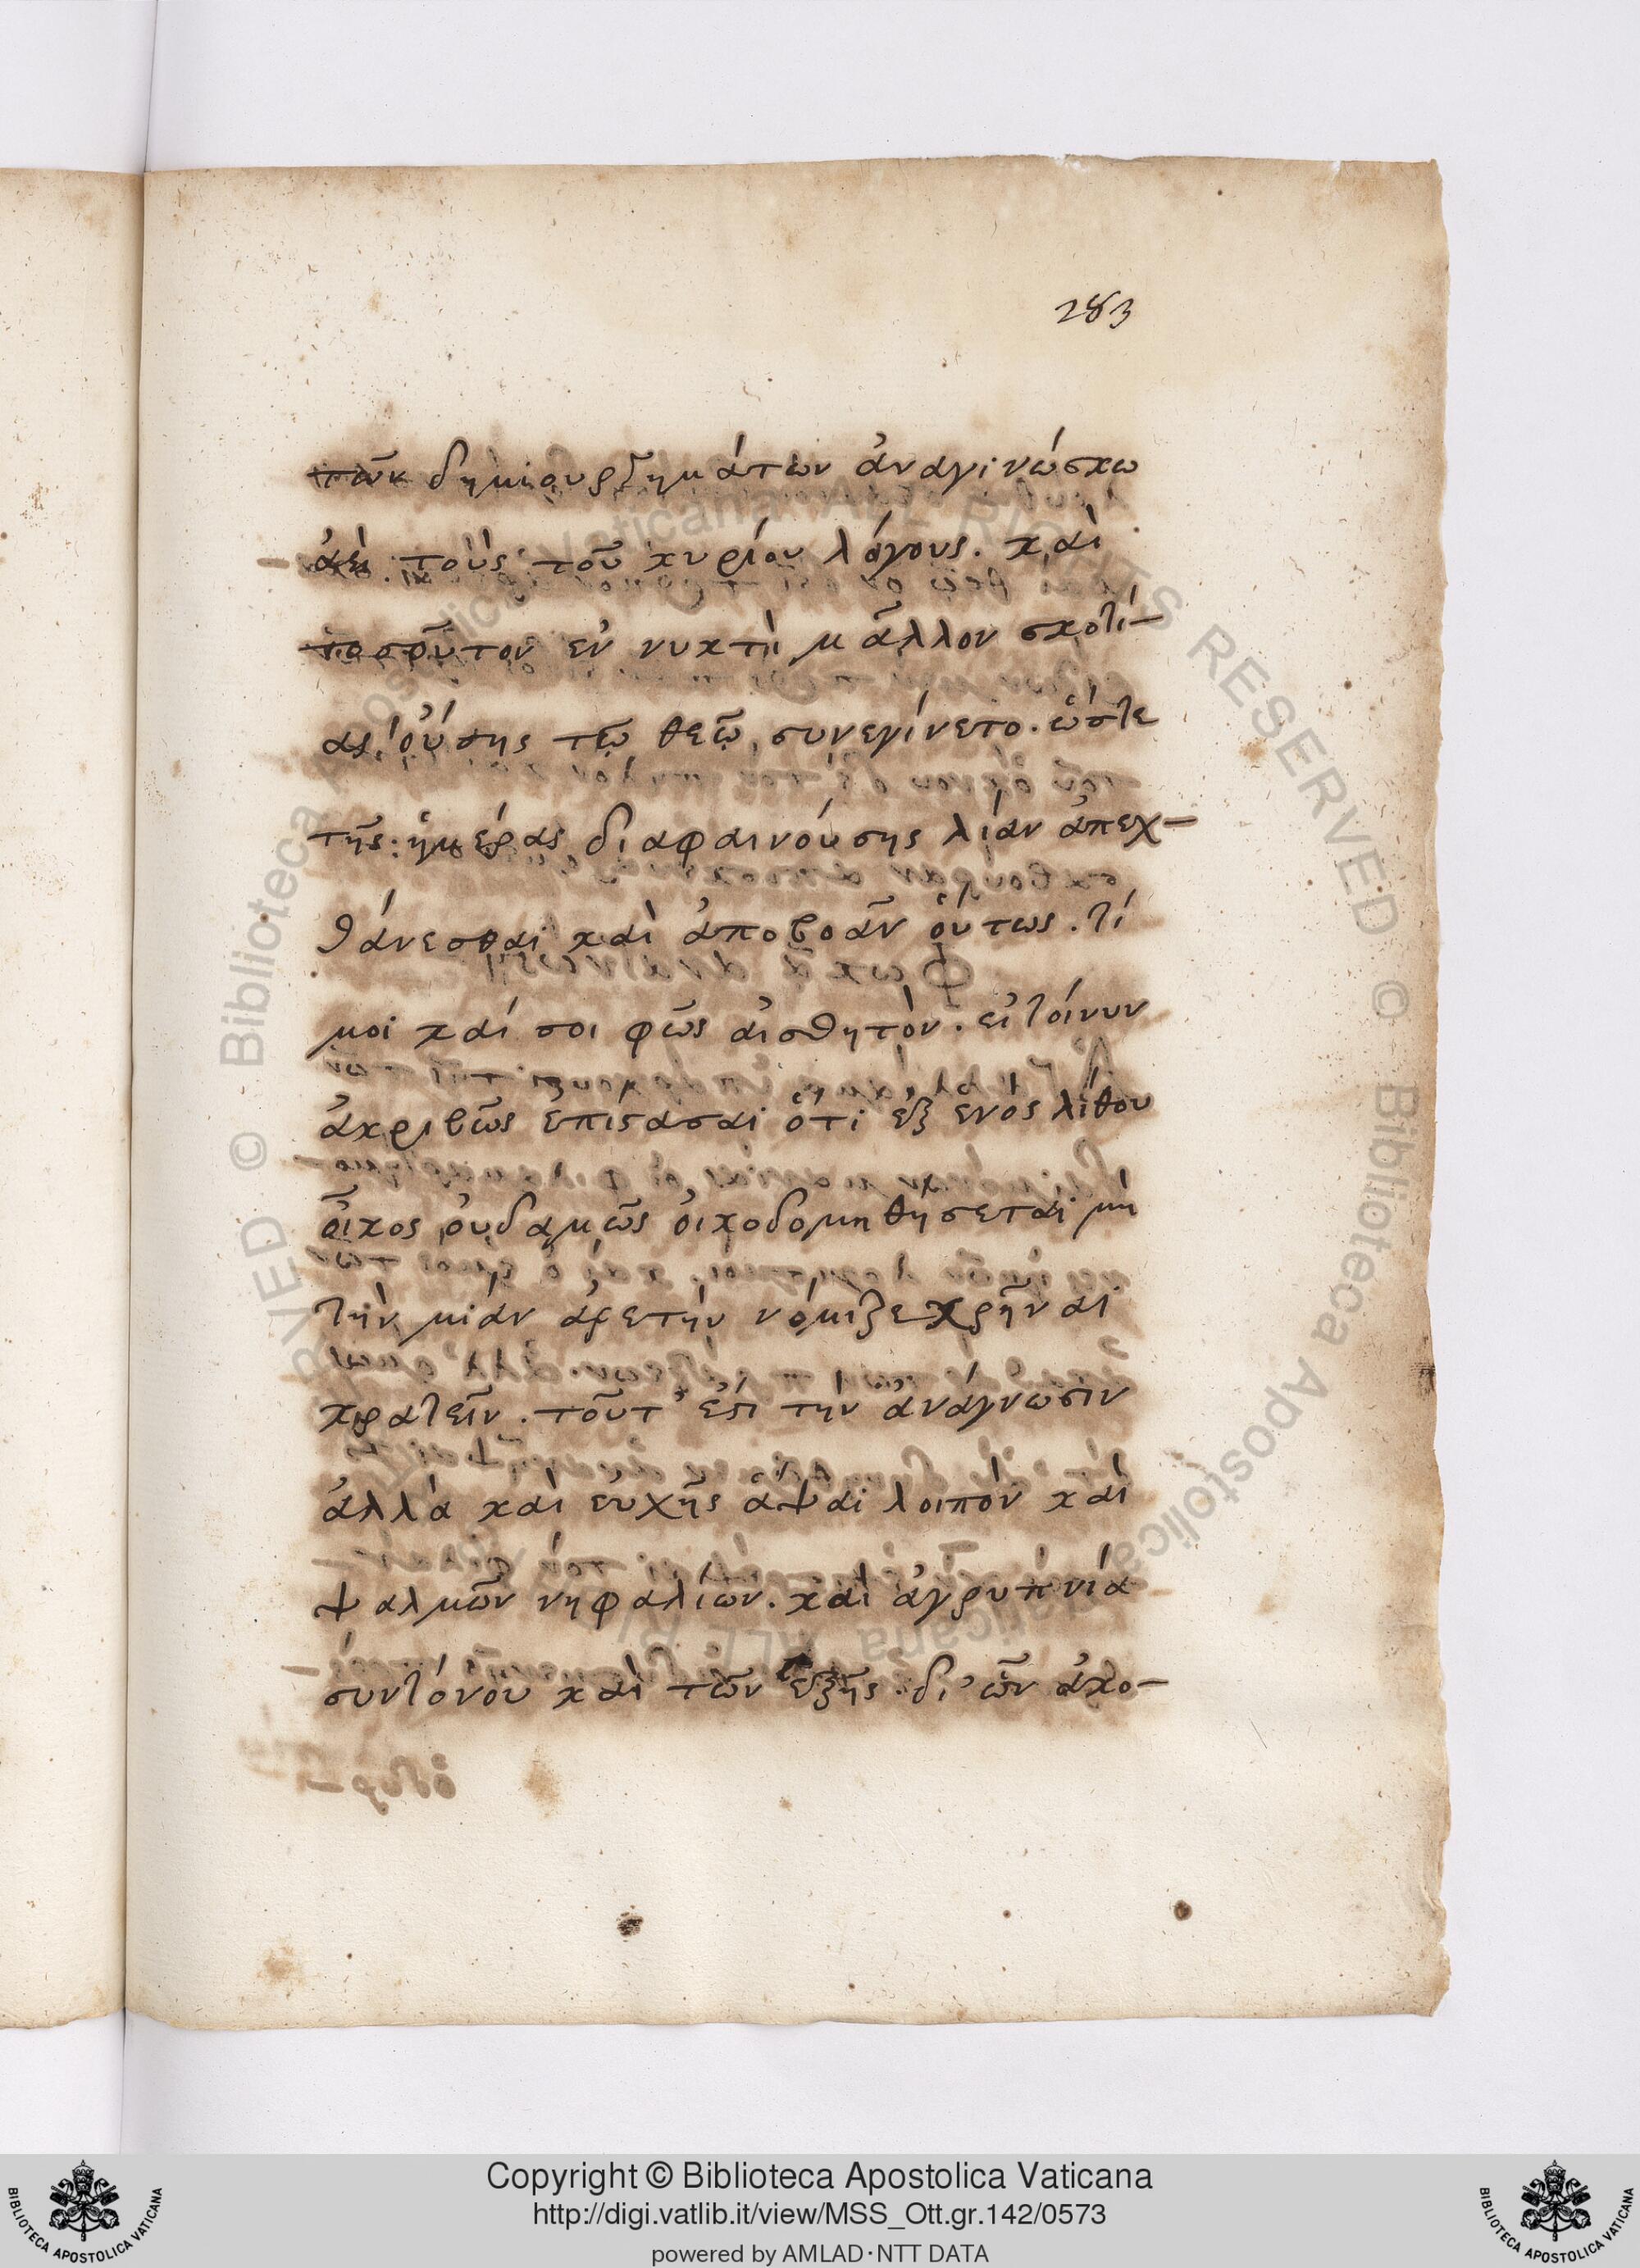 283
τῶν δημιουργημάτων ἀναγινώσκω
ἀεὶ τοὺς τοῦ κυρίου λόγους. καὶ
τοσοῦτον ἐν νυκτὶ μᾶλλον σκοτι-
ας οὔσης τῶ θεῶ συνεγίνετο. ὥστε
τῆς ἡμέρας διαφαινούσης λίαν ἀπεχ-
θάνεσθαι καὶ ἀποβοᾶν οὕτως. τί
μοι καί σοι φῶς αἰσθητὸν. εἰ τοίνυν
ἀκριβῶς ἐπίστασαι ὅτι ἐξ ἑνὸς λίθου
οἶκος οὐδαμῶς οἰκοδομηθήσεται μὴ
τὴν μίαν ἀρετὴν νόμιζε χρῆναι
κρατεῖν. τοῦτ' ἐστι τὴν ἀνάγνωσιν
ἀλλὰ καὶ εὐχῆς ἅψαι λοιπὸν καὶ
ψαλμῶν νηφαλίων. καὶ ἀγρυπνία
συντόνου καὶ τῶν ἑξῆς. δι' ὧν ἀκο-
Copyright © Biblioteca Apostolica Vaticana
http://digi.vatlib.it/view/MSS_Ott.gr.142/0573
powered by AMLAD·NTT DATA
BIBLIOTECA APOSTOLICA VATICANA
BIBLIOTECA APOSTOLICA VATICANA